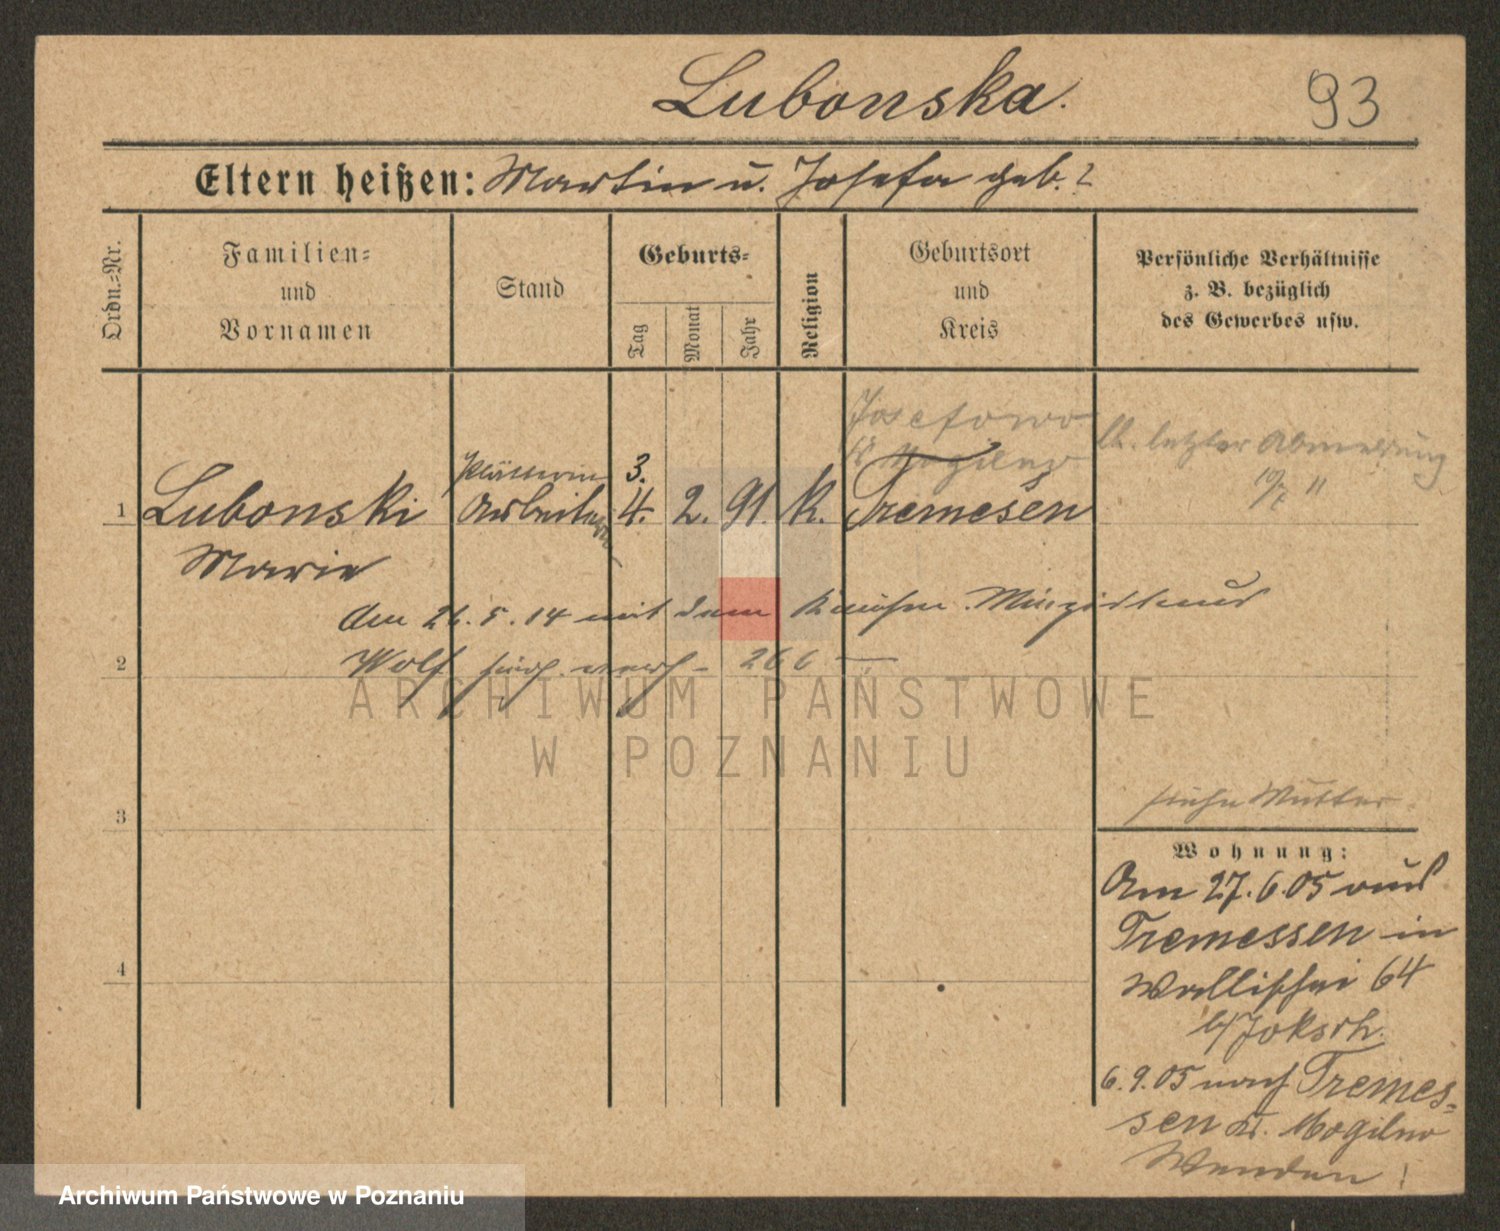 Lubonska.
93
Eltern heißen: Martin u. Josefa geb. ?
Ordn.-Nr.
Familien-
und
Vornamen
Stand
Geburts-
Tag
Monat
Jahr
Religion
Geburtsort
und
Kreis
Persönliche Verhältnisse
z. B. bezüglich
des Gewerbes usw.
Josefowo
Kr. Mogilno
lt. letzter Abmeldung
Plätterin
3.
1 Lubonski Arbeiterin 4. 2. 91. k. Tremesen
Marie
Am 26. 5. 14 mit dem
2
Wolf 266 —
ARCHIWUM PAŃSTWOWE
W POZNANIU
siehe Mutter
3
Wohnung:
Am 27. 6. 05 aus
Tremessen in
Wallischei 64
b/
4
6. 9. 05 nach Tremes-
sen Kr. Mogilno
Wenden!
Archiwum Państwowe w Poznaniu